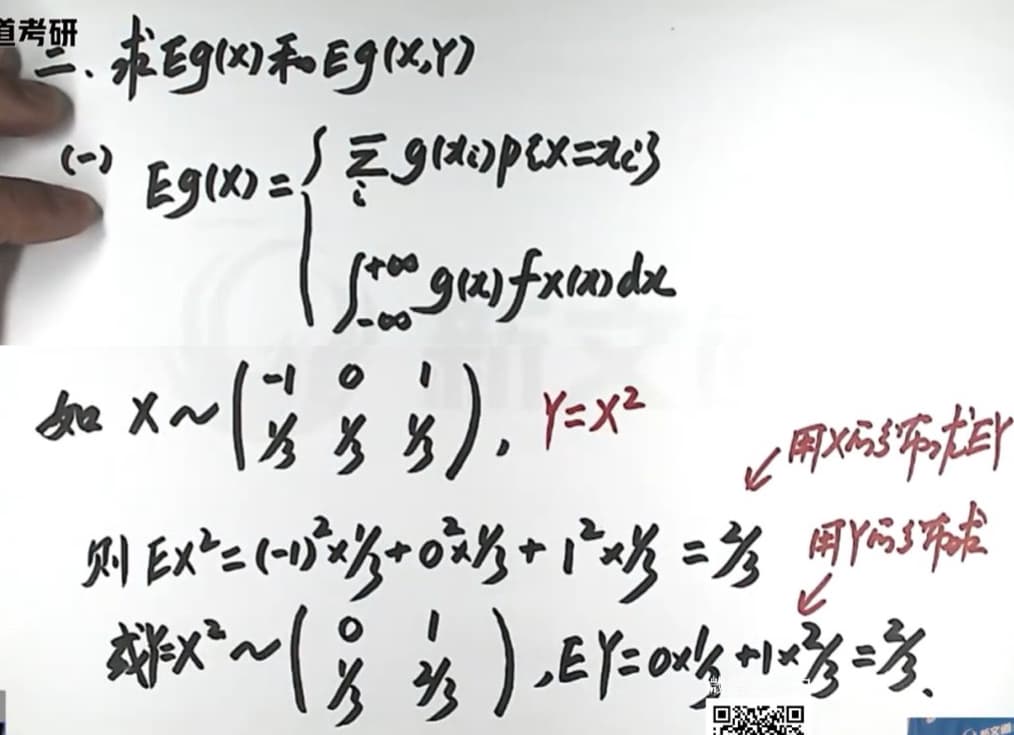 道考研
二、求Eg(X)和Eg(X,Y)
(一) Eg(X)={ ∑_i g(x_i)P{X=x_i}
∫_{-∞}^{+∞} g(x)f_X(x)dx
如 X~(-1 0 1
1/3 1/3 1/3), Y=X²
用X的分布求EY
则 EX²=(-1)²×1/3+0²×1/3+1²×1/3=2/3
用Y的分布求
或Y=X²~(0 1
1/3 2/3), EY=0×1/3+1×2/3=2/3.
新文道